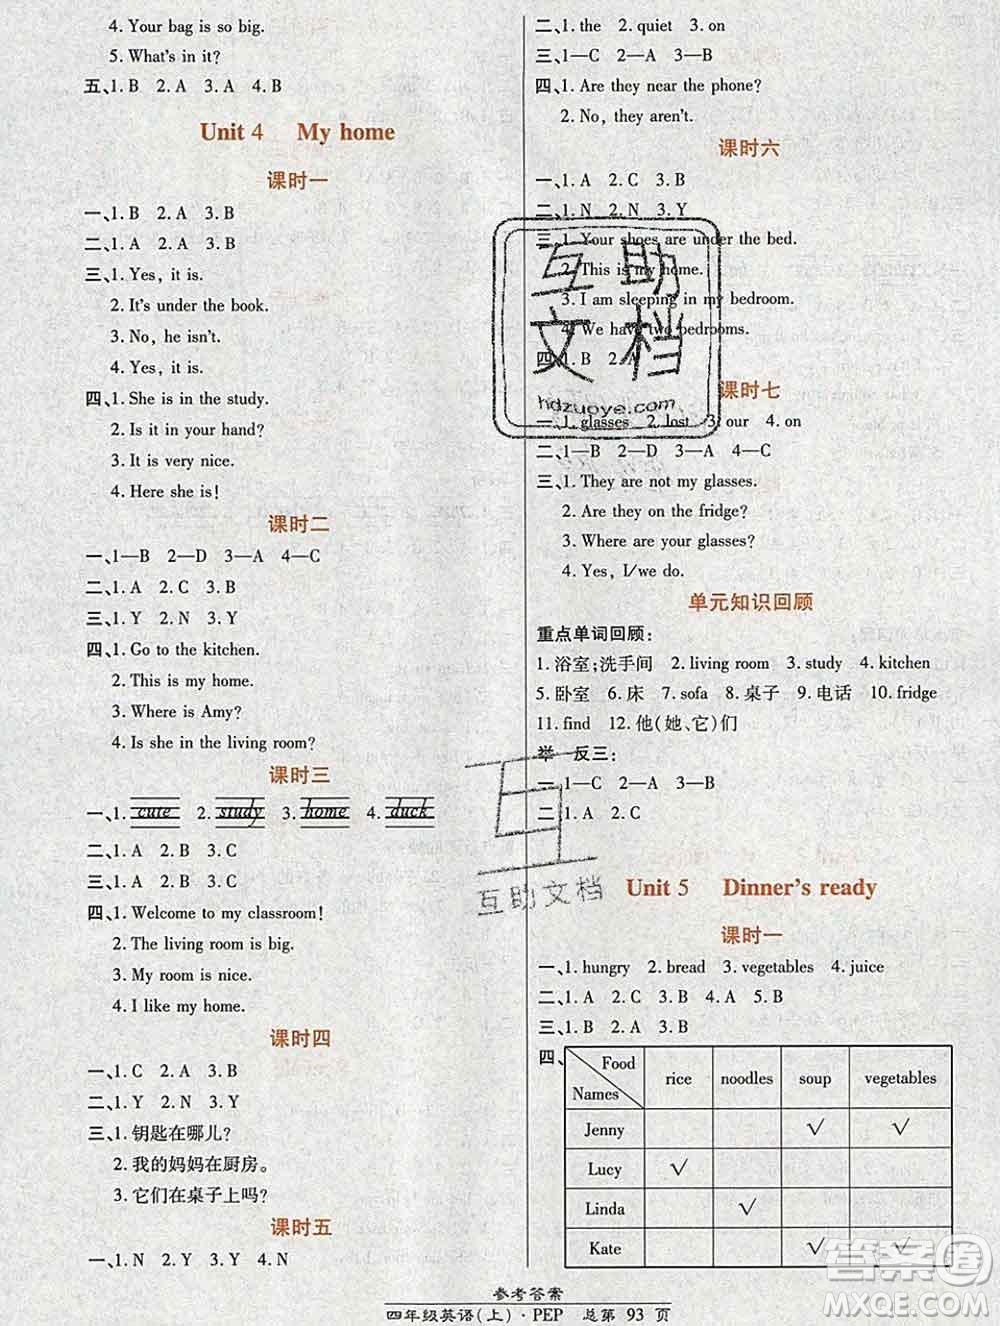 4. Your bag is so big.
5. What's in it?
五、1. B 2. A 3. A 4. B
Unit 4 My home
课时一
一、1. B 2. A 3. B
二、1. A 2. A 3. B
三、1. Yes, it is.
2. It's under the book.
3. No, he isn't.
4. Yes, it is.
四、1. She is in the study.
2. Is it in your hand?
3. It is very nice.
4. Here she is!
课时二
一、1—B 2—D 3—A 4—C
二、1. A 2. C 3. B
三、1. Y 2. N 3. Y
四、1. Go to the kitchen.
2. This is my home.
3. Where is Amy?
4. Is she in the living room?
课时三
一、1. cute 2. study 3. home 4. duck
二、1. A 2. B 3. C
三、1. A 2. A 3. C
四、1. Welcome to my classroom!
2. The living room is big.
3. My room is nice.
4. I like my home.
课时四
一、1. C 2. A 3. B
二、1. Y 2. N 3. Y
三、1. 钥匙在哪儿?
2. 我的妈妈在厨房。
3. 它们在桌子上吗?
课时五
一、1. N 2. Y 3. Y 4. N
二、1. the 2. quiet 3. on
三、1—C 2—A 3—B
四、1. Are they near the phone?
2. No, they aren't.
课时六
一、1. A 2. C 3. B
二、1. N 2. N 3. Y
三、1. Your shoes are under the bed.
2. This is my home.
3. I am sleeping in my bedroom.
4. We have two bedrooms.
四、1. B 2. A
课时七
一、1. glasses 2. lost 3. our 4. on
二、1—B 2—D 3—A 4—C
三、1. They are not my glasses.
2. Are they on the fridge?
3. Where are your glasses?
4. Yes, I/we do.
单元知识回顾
重点单词回顾:
1. 浴室;洗手间 2. living room 3. study 4. kitchen
5. 卧室 6. 床 7. sofa 8. 桌子 9. 电话 10. fridge
11. find 12. 他(她、它)们
举一反三:
一、1—C 2—A 3—B
二、1. A 2. C
Unit 5 Dinner's ready
课时一
一、1. hungry 2. bread 3. vegetables 4. juice
二、1. A 2. C 3. B 4. A 5. B
三、1. B 2. A 3. B
四、
Food Names rice noodles soup vegetables
Jenny √ √
Lucy √
Linda √
Kate √ √
参考答案
四年级英语(上)·PEP 总第 93 页
互助文档
hdzuoye.com
互助文档
答案圈
MXQE.COM